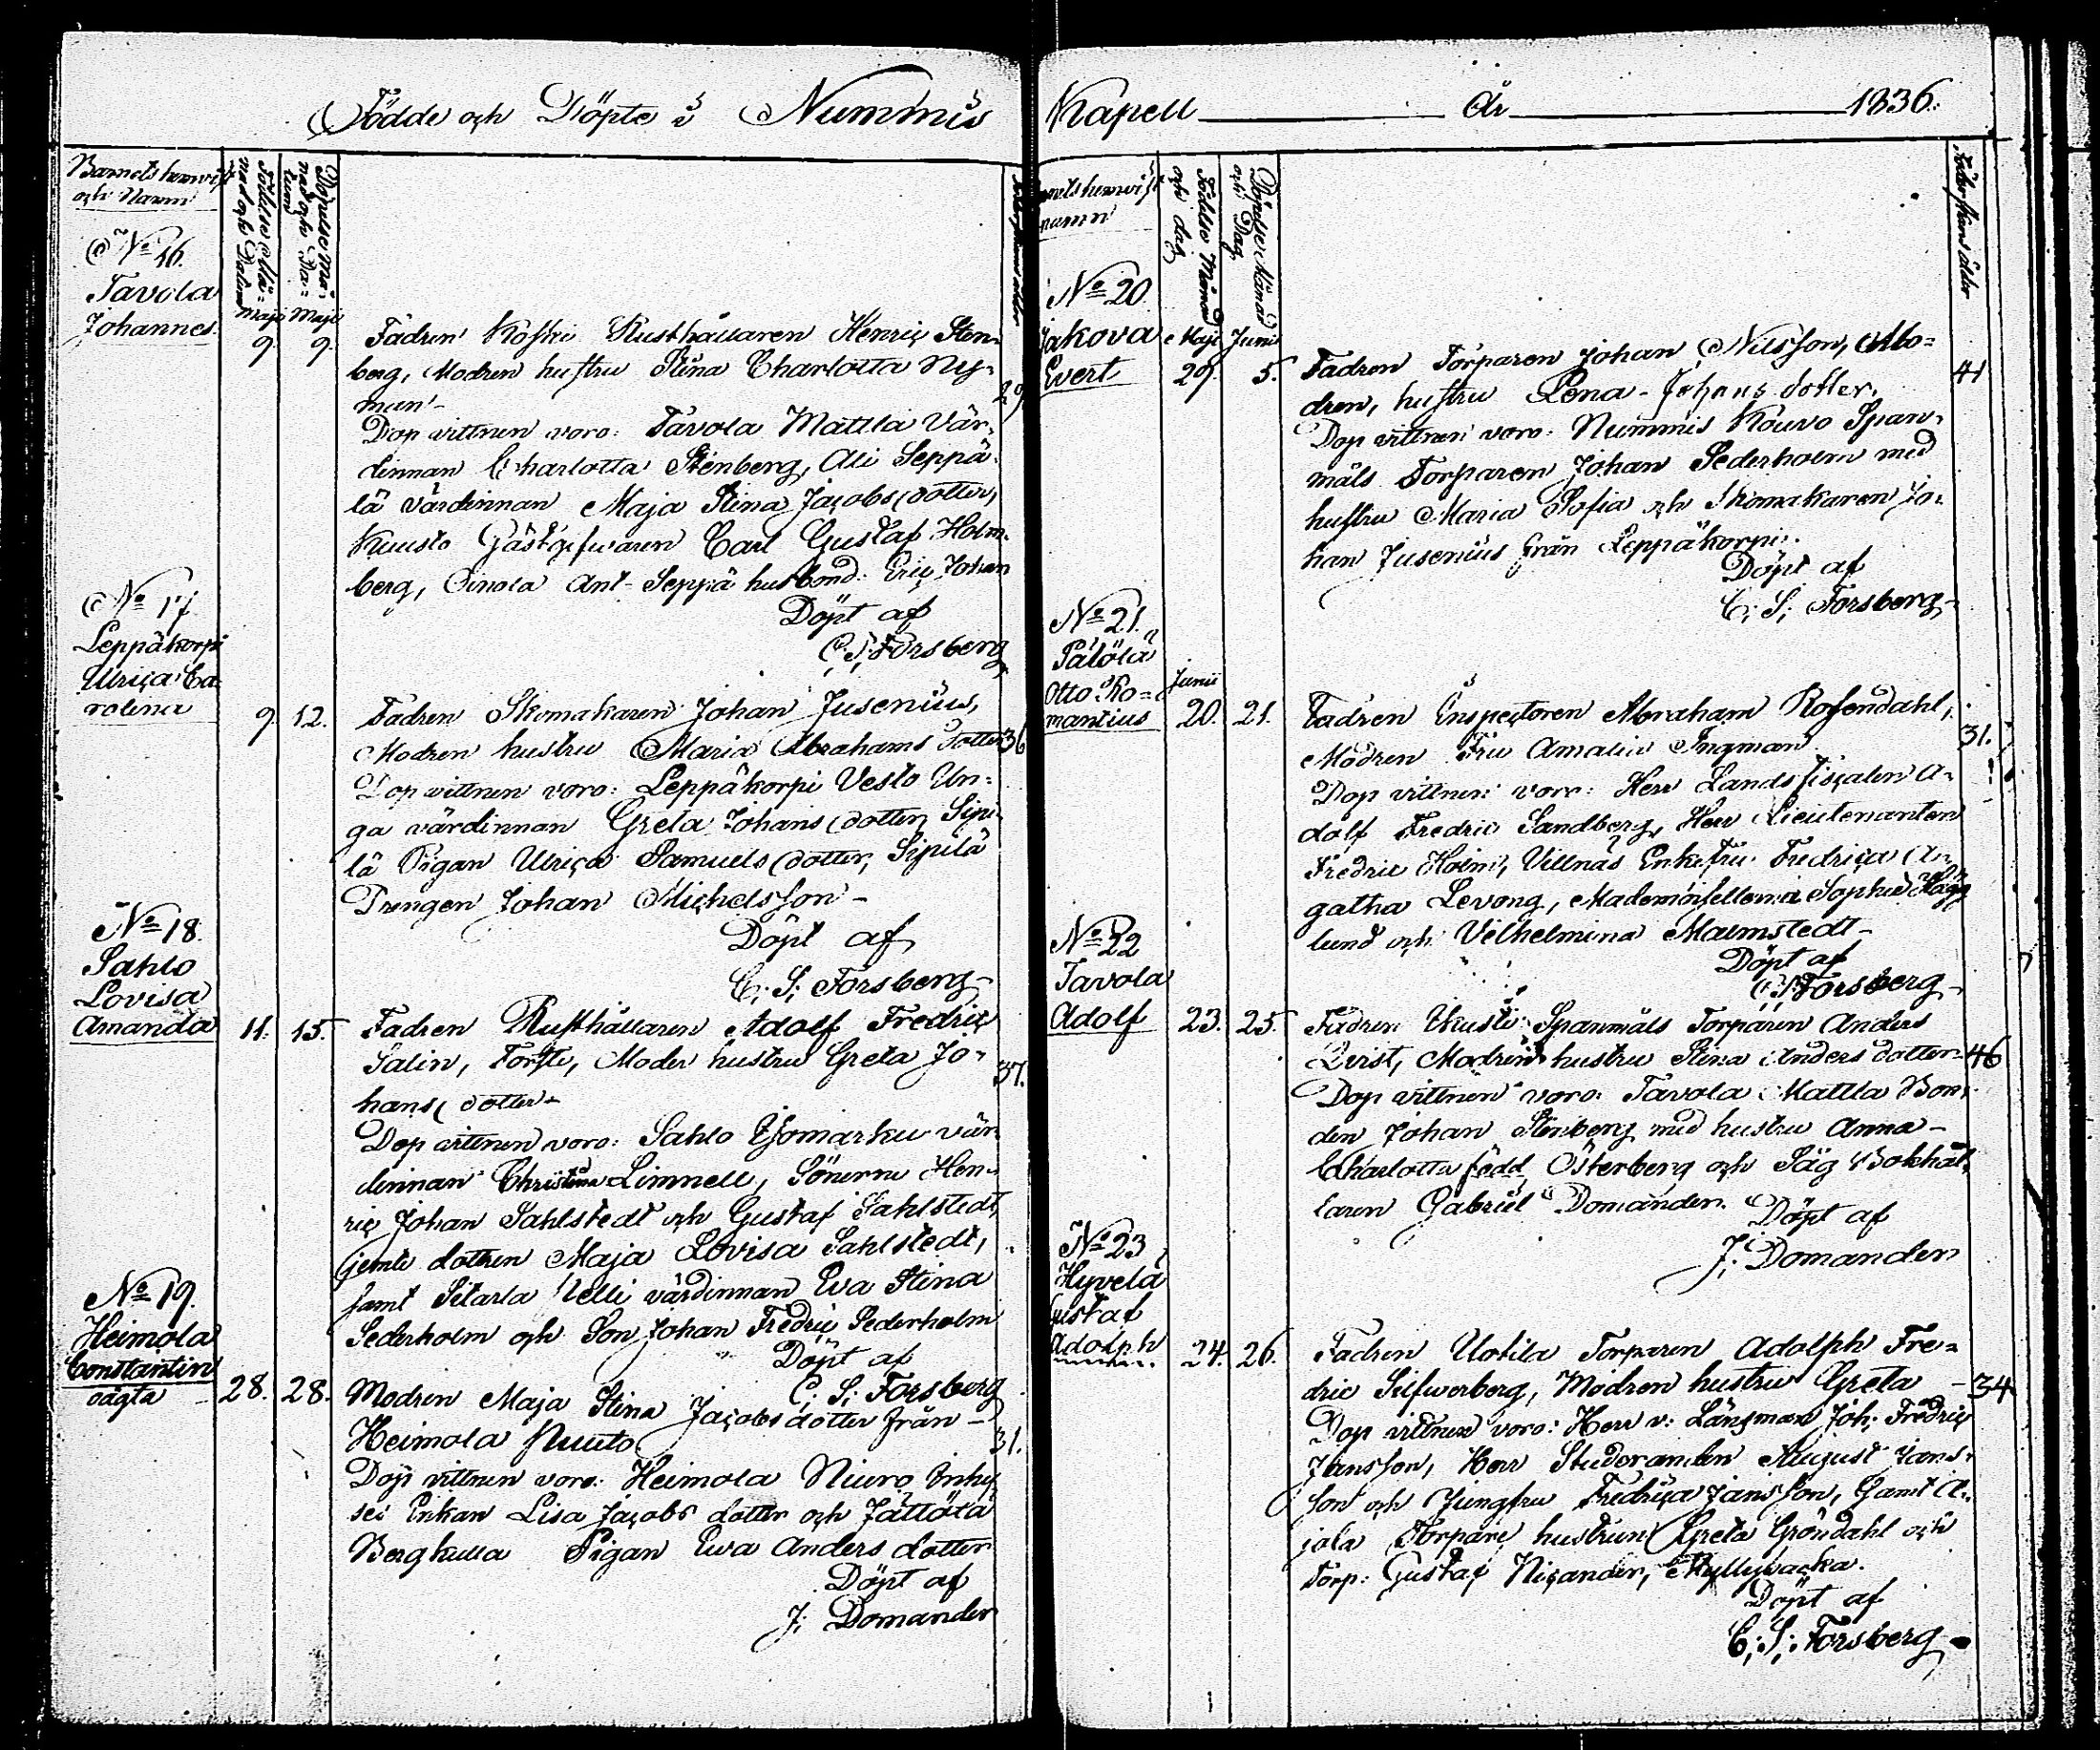 Födde och Döpte i Nummis
Barnets hemvist
och Namn
Födelse Må=
nad och Datum
Döpelse Må=
nad och Da=
tum
No 16.
Tavola
Johannes.
Maji Maji
9. 9.
Fadren Koski Rusthållaren Henric Sten-
berg, Modren hustru Stina Charlotta Ny-
man-
29
Dop vittnen voro: Tavola Mattla Vär-
dinnan Charlotta Stenberg, Ali Seppä-
lä värdinnan Maja Stina Jacobs dotter,
Kuusto Gästgifvaren Carl Gustaf Holm-
berg, Oinola Ant-Seppä husbond: Eric Johan
Döpt af
C; S; Forsberg
No 17
Leppäkorpi
Ulrica Ca-
rolina
9. 12.
Fadren Skomakaren Johan Jusenius,
Modren hustru Maria Abrahams dotter 36
Dop vittnen voro: Leppäkorpi Vesto Un-
ga värdinnan Greta Johans dotter, Sipi-
lä Pigan Ulrica Samuels dotter, Sipilä
Drengen Johan Michelsson-
Döpt af
C; S; Forsberg-
No 18.
Sahlo
Lovisa
Amanda
11. 15.
Fadren Rusthållaren Adolf Fredric
Salin, Moder hustru Greta Jo-
37.
hans dotter-
Dop vittnen voro: Sahlo Isomarku vär-
dinnan Christina Limnell, Sönerne Hen-
ric Johan Sahlstedt och Gustaf Sahlstedt,
jemte dottren Maja Lovisa Sahlstedt,
samt Sitarla Uelli värdinnan Eva Stina
Sederholm och Son Johan Fredric Sederholm
Döpt af
C; S; Forsberg
No 19.
Heimola
Constantin
oägta
28. 28.
Modren Maja Stina Jacobs dotter från-
Heimola Nuuto
31.
Dop vittnen voro: Heimola Niuro Inhy-
ses Enkan Lisa Jacobs dotter och Jättölä
Bergkulla Pigan Eva Anders dotter
Döpt af
J; Domander
Kapell År 1836.
hemvist
namn
Födelse Månad
och dag
Döpelse Månad
och Dag
Föderskans ålder
No 20
Jakova
Evert
Maji Junii
29. 5.
Fadren Torparen Johan Nilsson, Mo=
41
dren, hustru Lena Johans dotter.
Dop vittnen voro: Nummis Kouvo Span-
måls Torparen Johan Sederholm med
hustru Maria Sofia och Skomakaren Jo-
han Jusenius från Leppäkorpi.
Döpt af
C; S; Forsberg-
No 21.
Pälölä
Otto Ro=
mantius
Junii
20. 21.
Fadren Inspectoren Abraham Rosendahl,
31.
Modren Fru Amalia Ingman
Dop vittnen voro: Herr Landsfiscalen A-
dolf Fredric Sandberg, Herr Lieutenanten
Fredric Holm, Villnäs Enkefru Fredrica A-
gatha Levong, Mademoisellerna Sophie Hägg
lund och Vilhelmina Malmstedt-
Döpt af
C; S; Forsberg-
No 22
Tavola
Adolf
23. 25.
Fadren Spanmåls Torparen Anders
Qvist, Modren hustru Stina Anders dotter 46
Dop vittnen voro: Tavola Mattla Bon-
den Johan Stenberg med hustru Anna-
Charlotta född Österberg och Säg Bokhål-
laren Gabriel Domander.
Döpt af
J; Domander
No 23
Hyvelä
Gustaf
Adolph
24. 26.
Fadren Uotila Torparen Adolph Fre=
dric Silfverberg, Modren hustru Greta - 34
Dop vittnen voro: Herr v: Länsman Joh: Fredric
Jansson, Herr Studeranden August Jans-
son och Jungfru Fredrica Jansson, samt A-
jola Torpare hustrun Greta Gröndahl och
Torp: Gustaf Nicander, Myllybacka.
Döpt af
C; S; Forsberg-